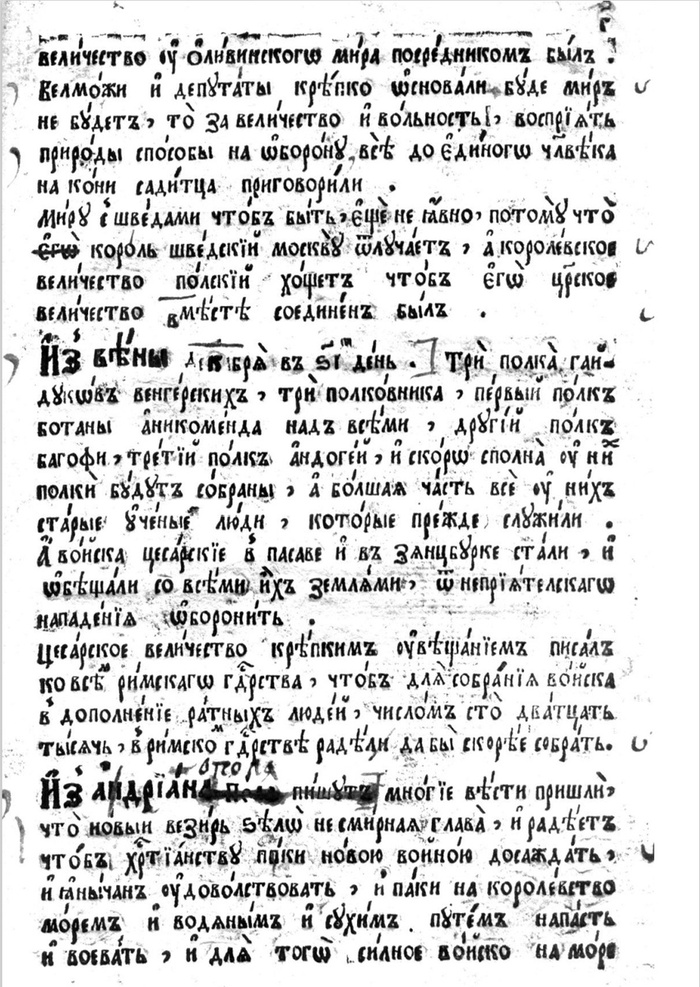 г
величество ѹ҆ ѻ҆ливинскогѡ ми́ра посре́дникомъ бы́лъ .
Велмо́жи и҆ депута́ты крѣ́пко ѡ҆снова́ли бу́де ми́ръ
не бу́детъ, то̀ за величество и҆ во́льность, воспрїѧ́ть
приро́ды спо́собы на ѡ҆боро́нꙋ, всѣ̀ до є҆ди́ногѡ чл҃вѣ́ка
на ко́ни сади́тца приговори́ли .
Ми́рꙋ с̾ шве́дами что́бъ бы́ть, є҆щѐ не ꙗ҆́вно, потомꙋ̀ что̀
коро́ль шве́дскїй москвꙋ̀ ѿлꙋча́етъ, а҆ короле́вское
величество по́лскїй хо́щетъ что́бъ є҆гѡ̀ црⷭ҇кое
величество вмѣ́стѣ соедине́нъ бы́лъ .
И҆з̾ вѣ́ны декабрѧ̀ въ ѕ҃і де́нь . ] Трѝ полка̀ гаи-
дꙋкѡ́въ венге́рскихъ, трѝ полко́вника, пе́рвый по́лкъ
ботаны а҆никоме́нда надъ всѣ́ми, дрꙋгі́й полкъ
багофи, тре́тїй по́лкъ а҆ндоге́й, и҆ ско́рѡ сполна̀ ѹ҆ ни́хъ
полкѝ бꙋ́дꙋтъ со́браны, а҆ бо́лшаѧ ча́сть всѐ ѹ҆ ни́хъ
ста́рые ѹ҆че́ные лю́ди, кото́рые пре́жде слꙋжи́ли .
А҆ во́йска цеса́рскїе в̾ пасаве и҆ въ зѧнцбурке ста́ли, и҆
ѡ҆бѣща́ли со всѣ́ми и҆́хъ землѧ́ми, ѿ непрїѧ́телскагѡ
нападе́нїѧ ѡ҆боро́нить .
Цеса́рское вели́чество крѣ́пкимъ ѹ҆вѣща́нїемъ писа́лъ
ко все́й ри́мскагѡ гдⷭ҇рства, что́бъ длѧ̀ собра́нїѧ во́йска
в̾ дополне́нїе ра́тныхъ люде́й, число́мъ сто̀ два́тцать
ты́сѧчь, в̾ ри́мскомъ гдⷭ҇рствѣ радѣ́ли да бы̀ скорѣ́е собра́ть.
опола
И҆з̾ а҆ндрїа́на пи́шꙋтъ ] мно́гїе вѣ́сти пришлѝ,
что̀ но́выи вези́рь ѕѣлѡ̀ не сми́рнаѧ глава̀, и҆ радѣ́етъ
что́бъ хрⷭ҇тїа́нствꙋ па́ки но́вою войно́ю досажда́ть,
и҆ ꙗ҆ныча́нъ ѹ҆дово́лствовать, и҆ па́ки на короле́вство
мо́ремъ и҆ водѧны́мъ и҆ сꙋхи́мъ пꙋте́мъ напа́сть
и҆ воева́ть, и҆ длѧ̀ тогѡ̀ си́лное во́йско на мо́ре